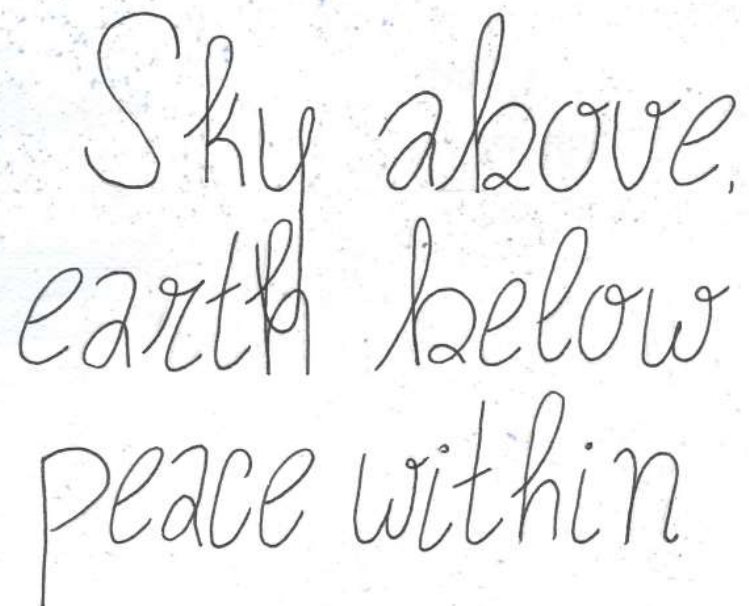 Sky above,
earth below
peace within